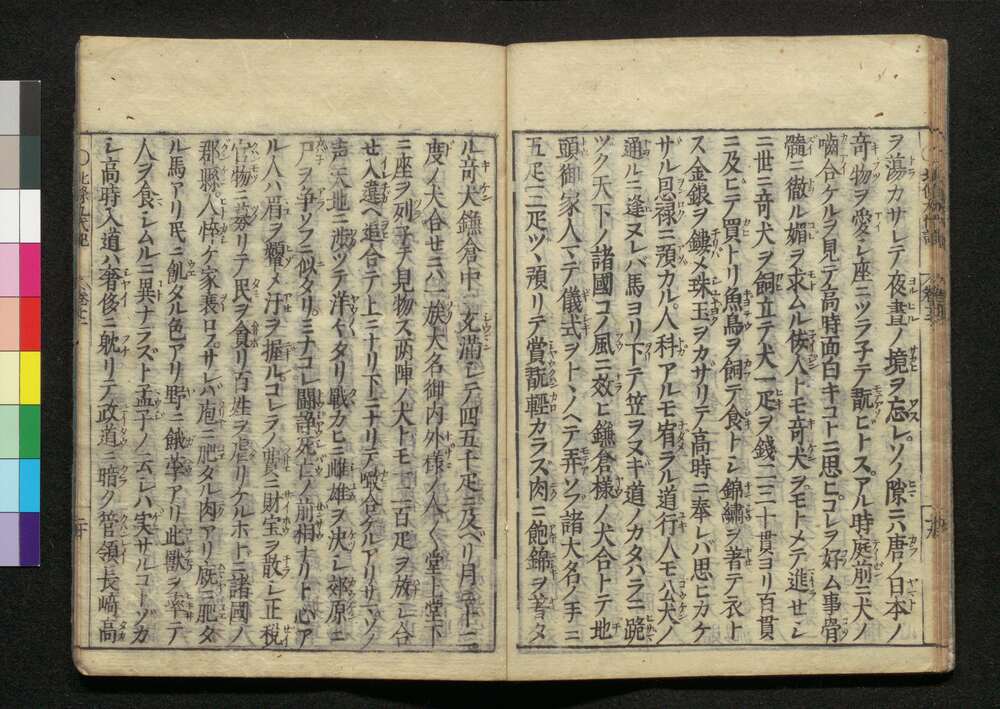 ヲ蕩カサレテ夜晝ノ境ヲ忘レソノ隙ニハ唐ノ日本ノ
竒物ヲ愛シ座ニツラ子テ翫ヒトスアル時庭前ニ犬ノ
嚙合ケルヲ見テ高時面白キコトニ思ヒコレヲ好ム事骨
髓ニ徹ル媚ヲ求ムル侫人トモ竒犬ヲモトメテ進セシ
ニ世ニ竒犬ヲ飼立テ犬一疋ヲ錢二三十貫ヨリ百貫
ニ及ヒテ買トリ魚鳥ヲ飼テ食トシ錦繡ヲ著テ衣ト
ス金銀ヲ鏤メ珠玉ヲカザリテ高時ニ奉レバ思ヒカケ
サル恩禄ニ預カル人科アルモ宥ラル道行人モ公犬ノ
通ルニ逢ヌレバ馬ヨリ下テ笠ヲヌキ道ノカタハラニ跪
ツク天下ノ諸國コノ風ニ效ヒ鎌倉樣ノ犬合トテ地
頭御家人マテ儀式ヲトヽノヘテ弄ソブ諸大名ノ手ニ
五疋二疋ツヽ預リテ賞翫輕カラズ肉ニ飽錦ヲ著タ
ル竒犬鎌倉中ニ充滿シテ四五千疋ニ及ベリ月ニ十二
度ノ犬合セニハ一族大名御内外樣ノ人〱堂上堂下
ニ座ヲ列子テ見物ス両陣ノ犬トモ一二百疋ヲ放シ合
せ入違ヘ追合テ上ニナリ下ニナリテ嚙合ケルアリサマソノ
声天地ニ渋ツテ洋〱タリ戰カヒニ雌雄ヲ決シ郊原ニ
尸ヲ争ソフニ似タリミナコレ闘諍死亡ノ前相ナリト心ア
ル人ハ眉ヲ顰メ汗ヲ握ルコレラノ費ニ財宝ヲ散シ正税
官物ニ募リテ民ヲ貪リ百姓ヲ虐リケルホトニ諸國ノ
郡縣人悴ケ家衰ロフサレバ庖ニ肥タル肉アリ厩ニ肥タ
ル馬アリ民ニ飢タル色アリ野ニ餓莩アリ此獸ヲ率テ
人ヲ食シムルニ異ナラズト孟子ノ云シハ実サルコトゾカ
シ高時入道ハ奢侈ニ躭リテ政道ニ暗ク管領長﨑高